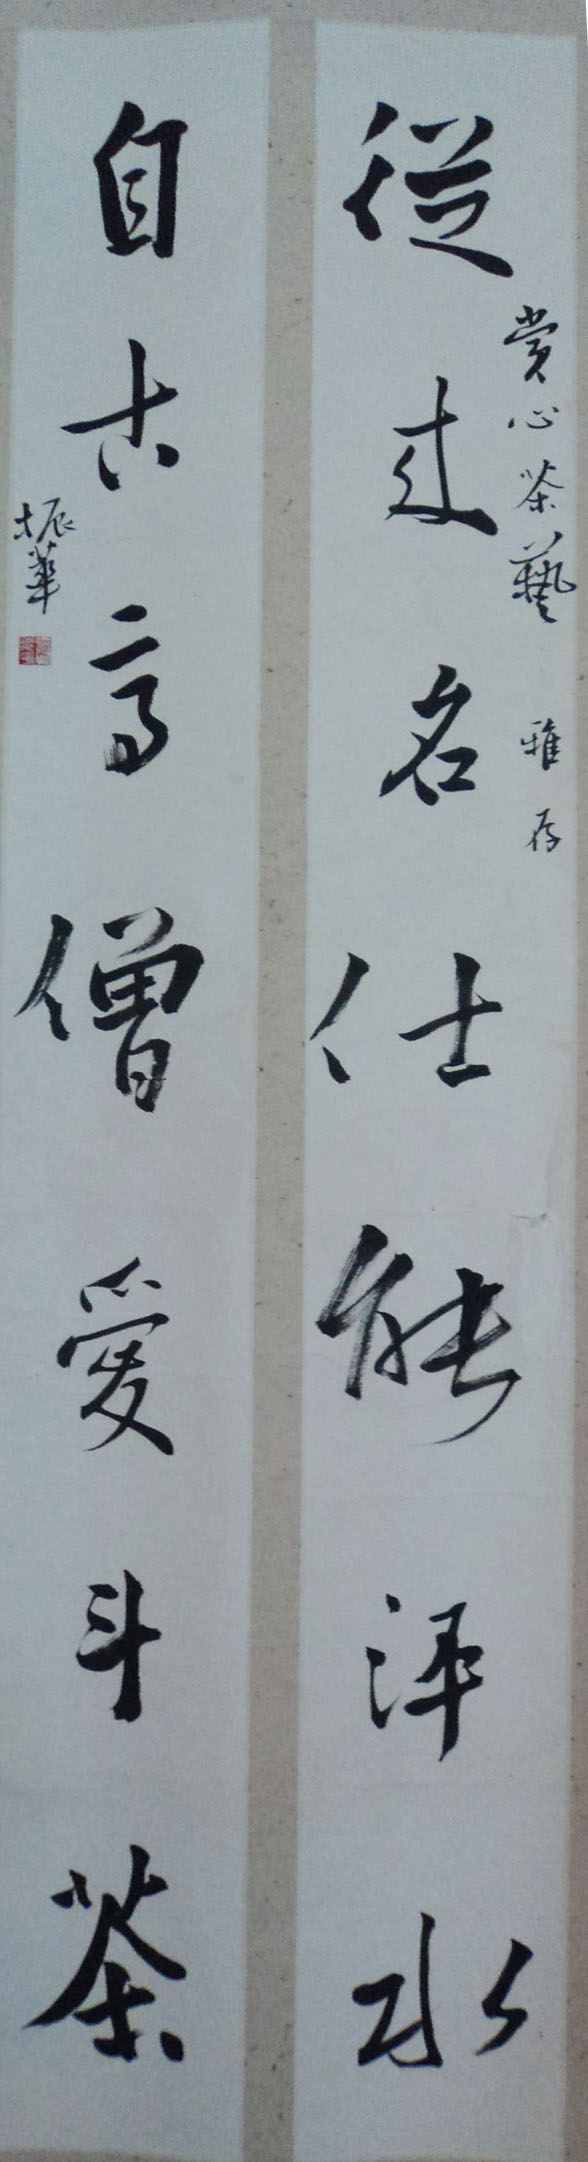 從來名仕能評水
賞心茶藝 雅存
自古高僧愛斗茶
振華